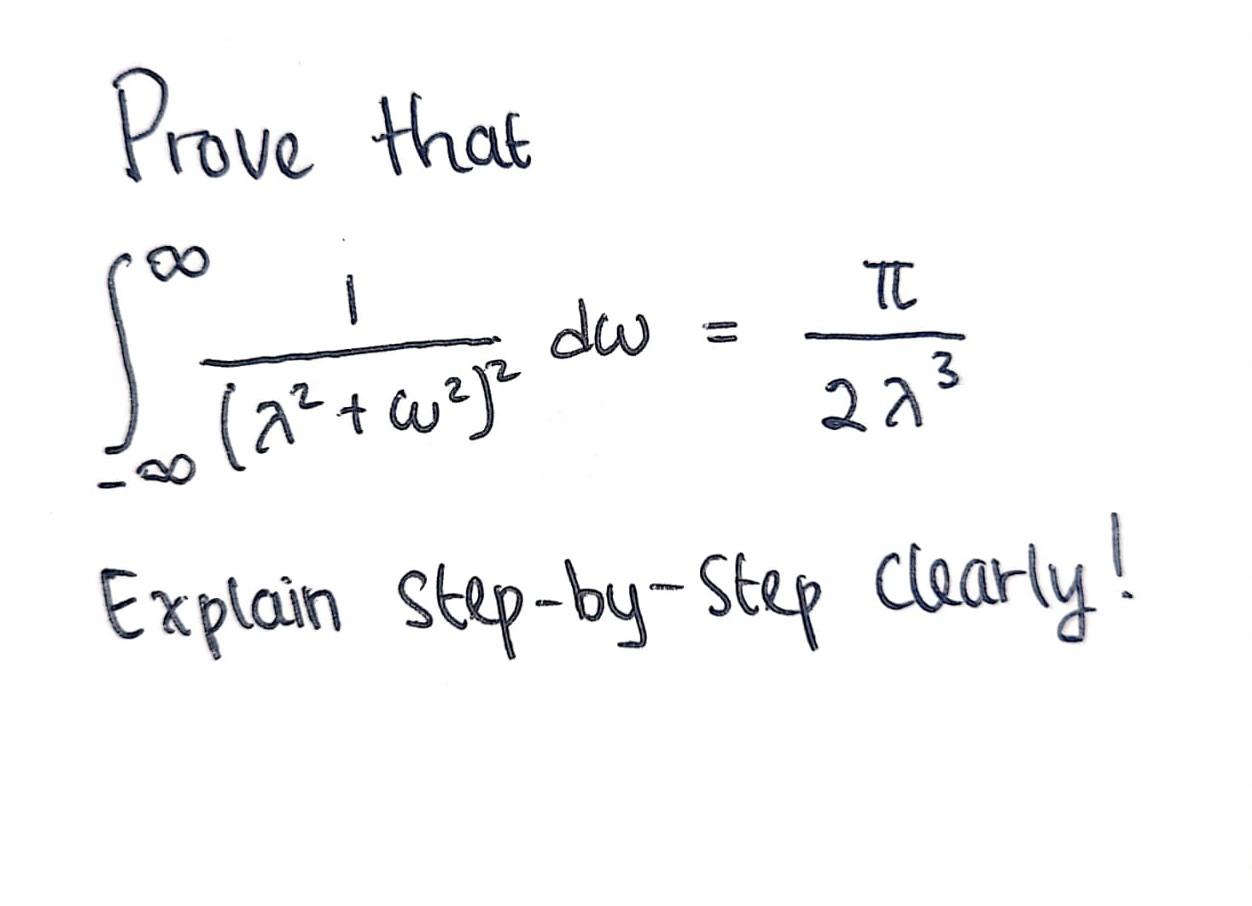 Prove that
∫_{-∞}^{∞} 1/(λ² + ω²)² dω = π/(2λ³)
Explain step-by-step clearly!